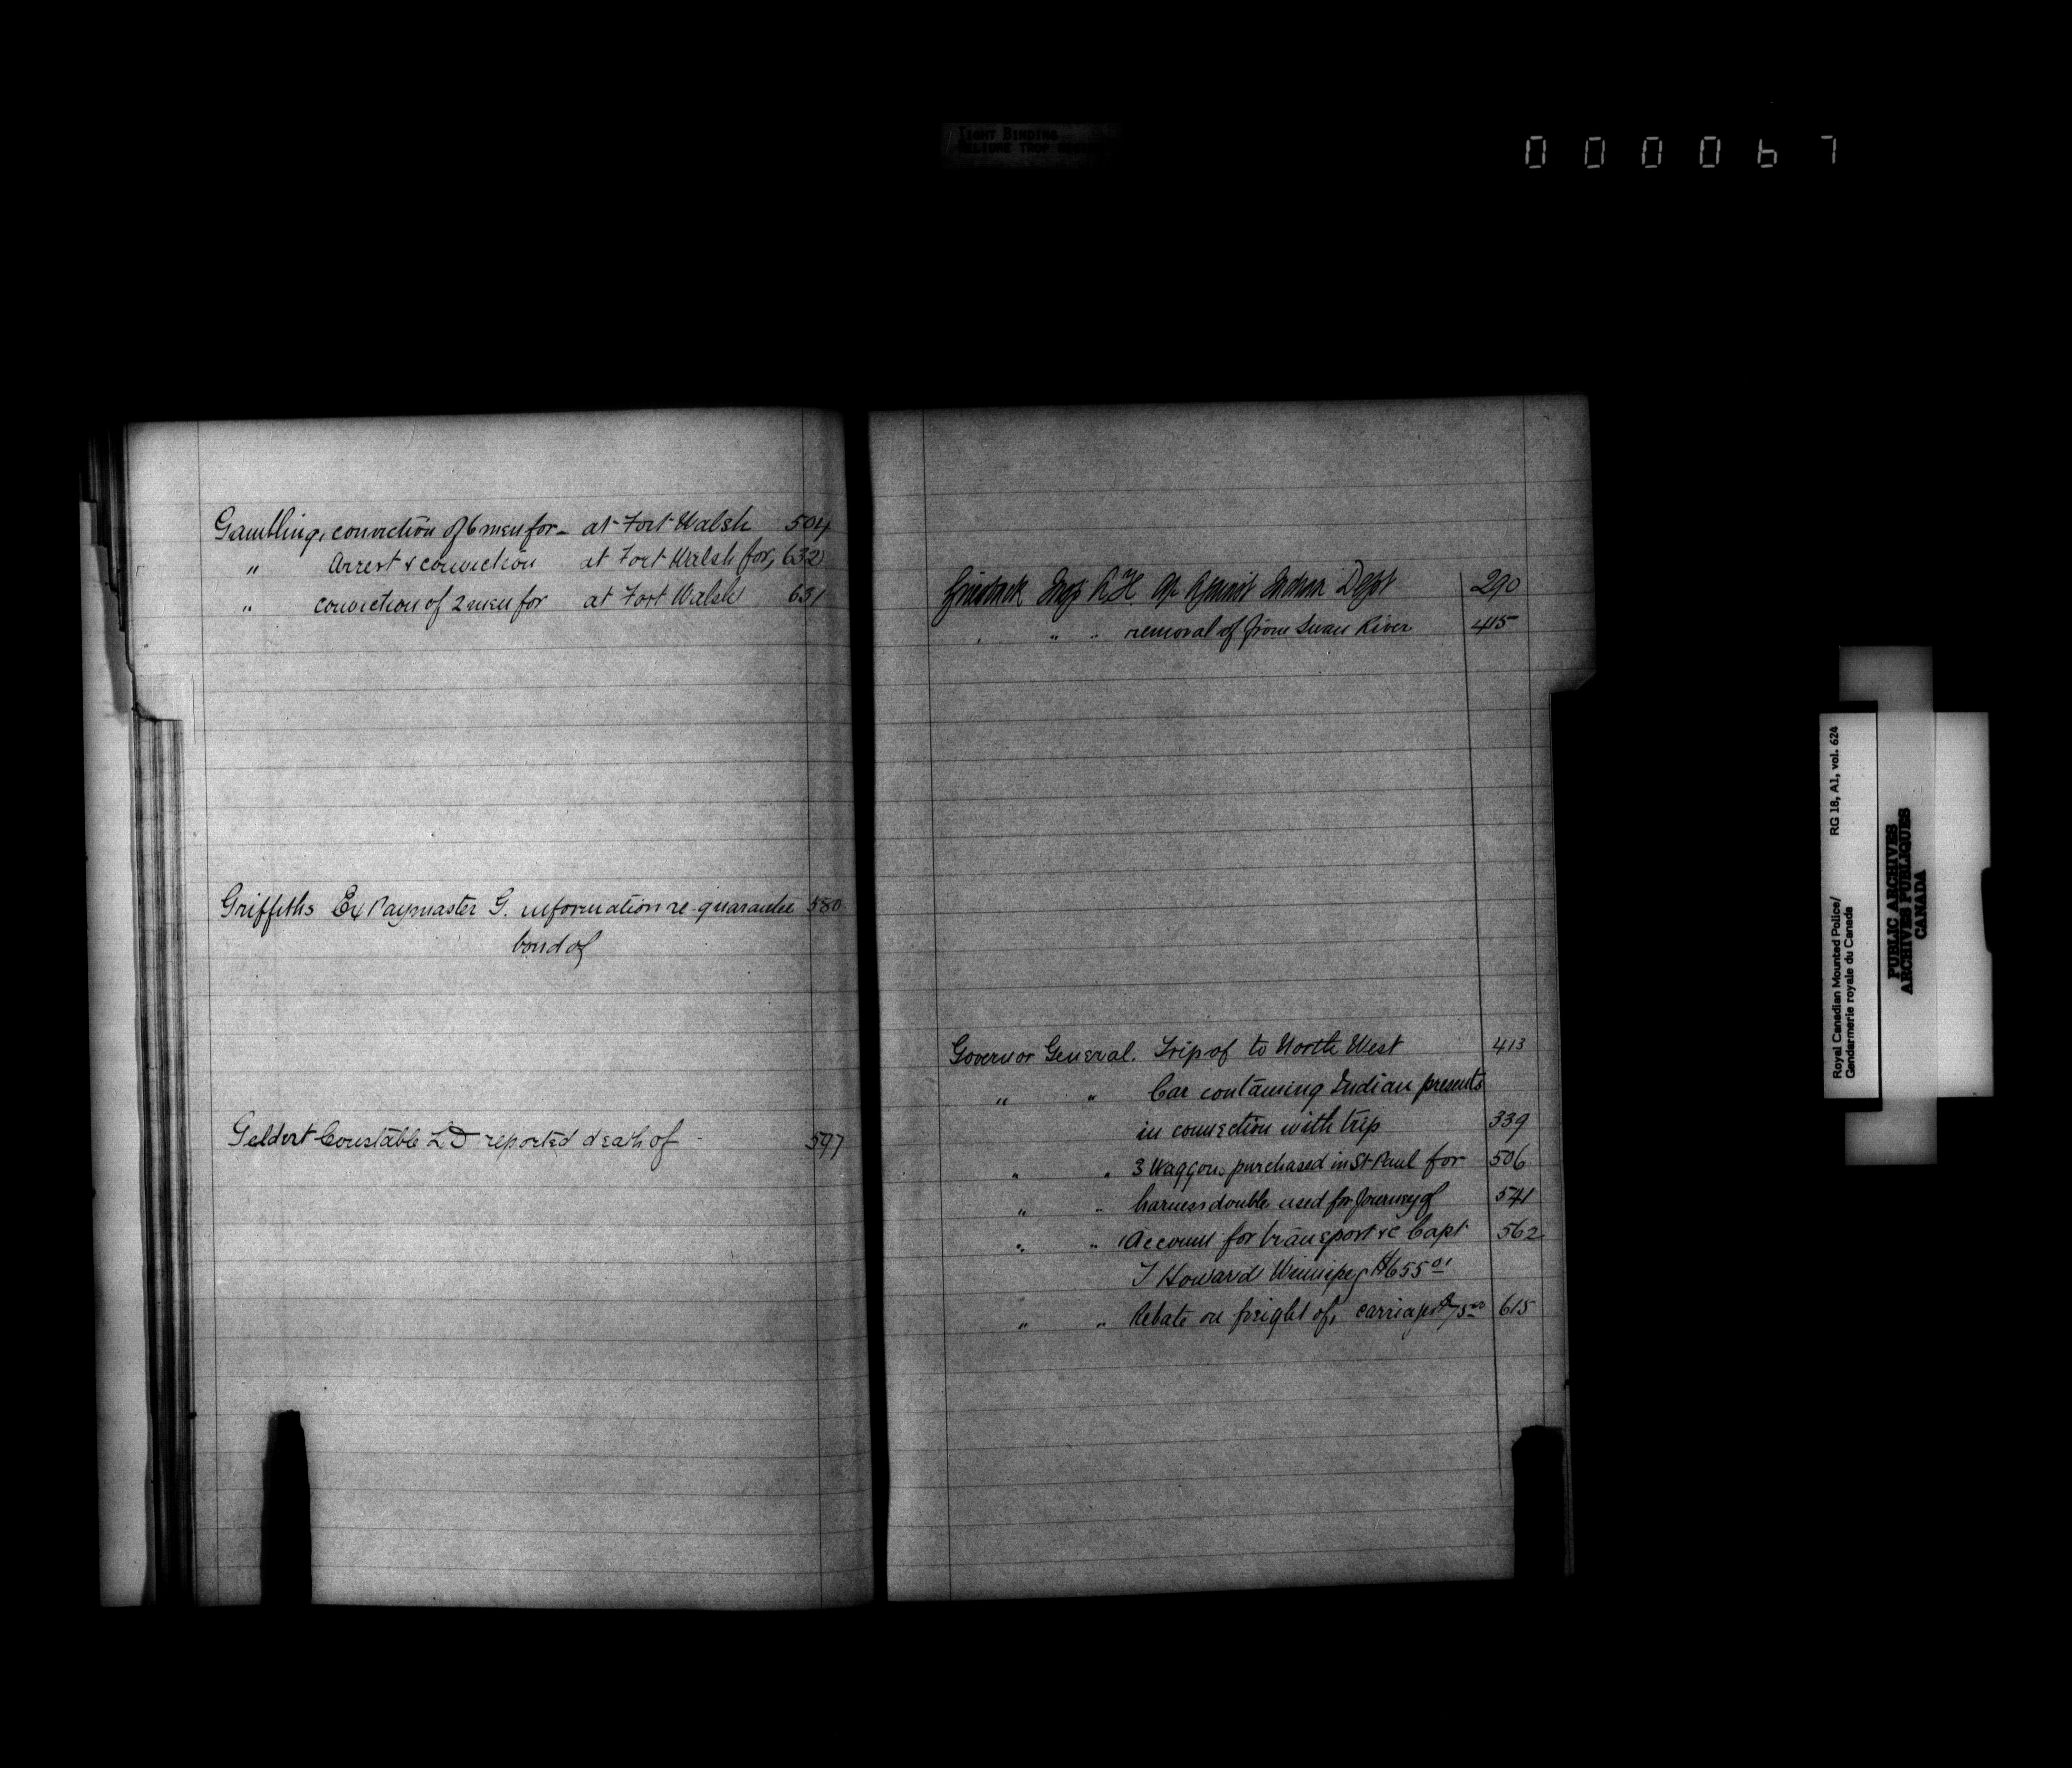 TIGHT BINDING
RELIURE TROP
000067
Gambling, conviction of 6 men for - at Fort Walsh 504
" Arrest & conviction at Fort Walsh for, 632
" conviction of 2 men for at Fort Walsh 631
Griffiths Ex Paymaster G. information re guarantee 580
bond of
Geldert Constable L D reported death of - 597
Insp. Indian Dept 290
" " removal of from Swan River 415
Governor General. Trip of to North West 413
" " Car containing Indian presents
in connection with trip 339
" " 3 Waggons purchased in St Paul for 506
" " harness double used for Journey of 541
" " Account for transport &c Capt 562
T Howard Winnipeg $655 01
" " Rebate on freight of, 615
Royal Canadian Mounted Police/ RG 18, A1, vol. 624
Gendarmerie royale du Canada
PUBLIC ARCHIVES
ARCHIVES PUBLIQUES
CANADA